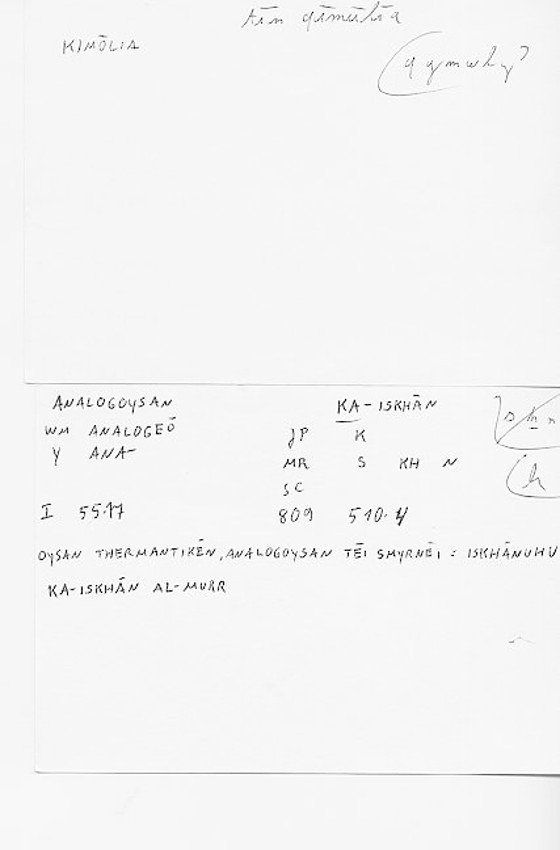 ṭīn qīmūliyā
KIMŌLIA
q ymwly?
ANALOGOYSAN KA-ISKHĀN
WM ANALOGEŌ JP K
Y ANA- MR S KH N
SC
I 55.17 809 510.4
OYSAN THERMANTIKĒN, ANALOGOYSAN TĒI SMYRNĒI : ISKHĀNUHU
KA-ISKHĀN AL-MURR